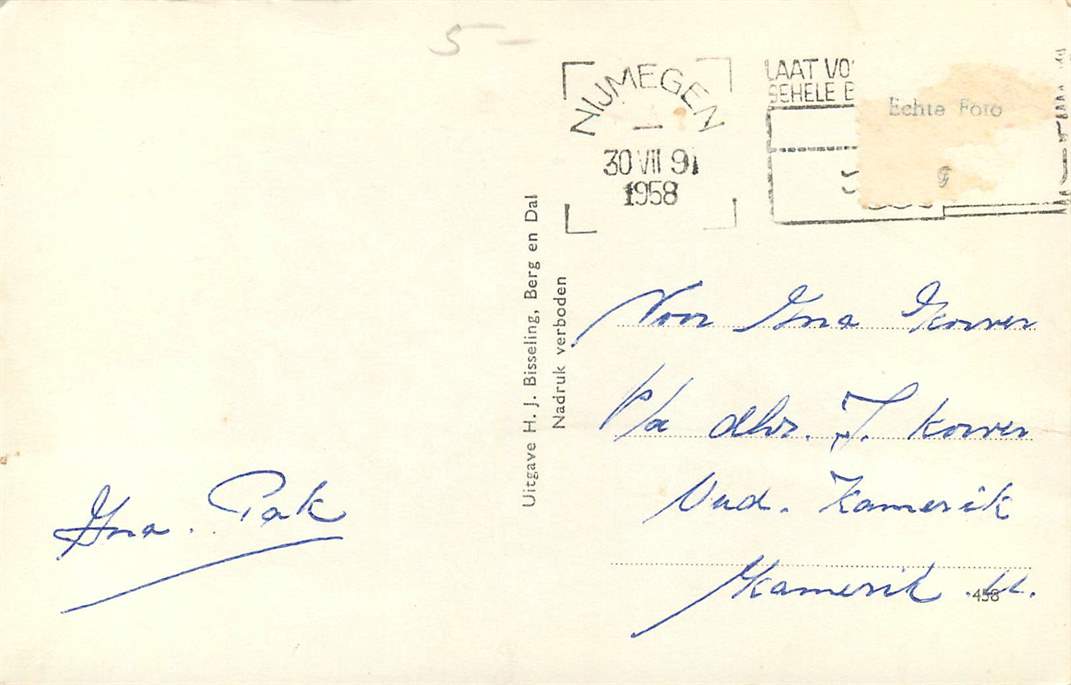 5-
NIJMEGEN
30 VII 9
1958
LAAT VO
GEHELE B
Echte Foto
Uitgave H. J. Bisseling, Berg en Dal
Nadruk verboden
Voor Ina Kover
p/a dhr. J. Kover
Oud. Kamerik
Kamerik
458
Ina. Pak